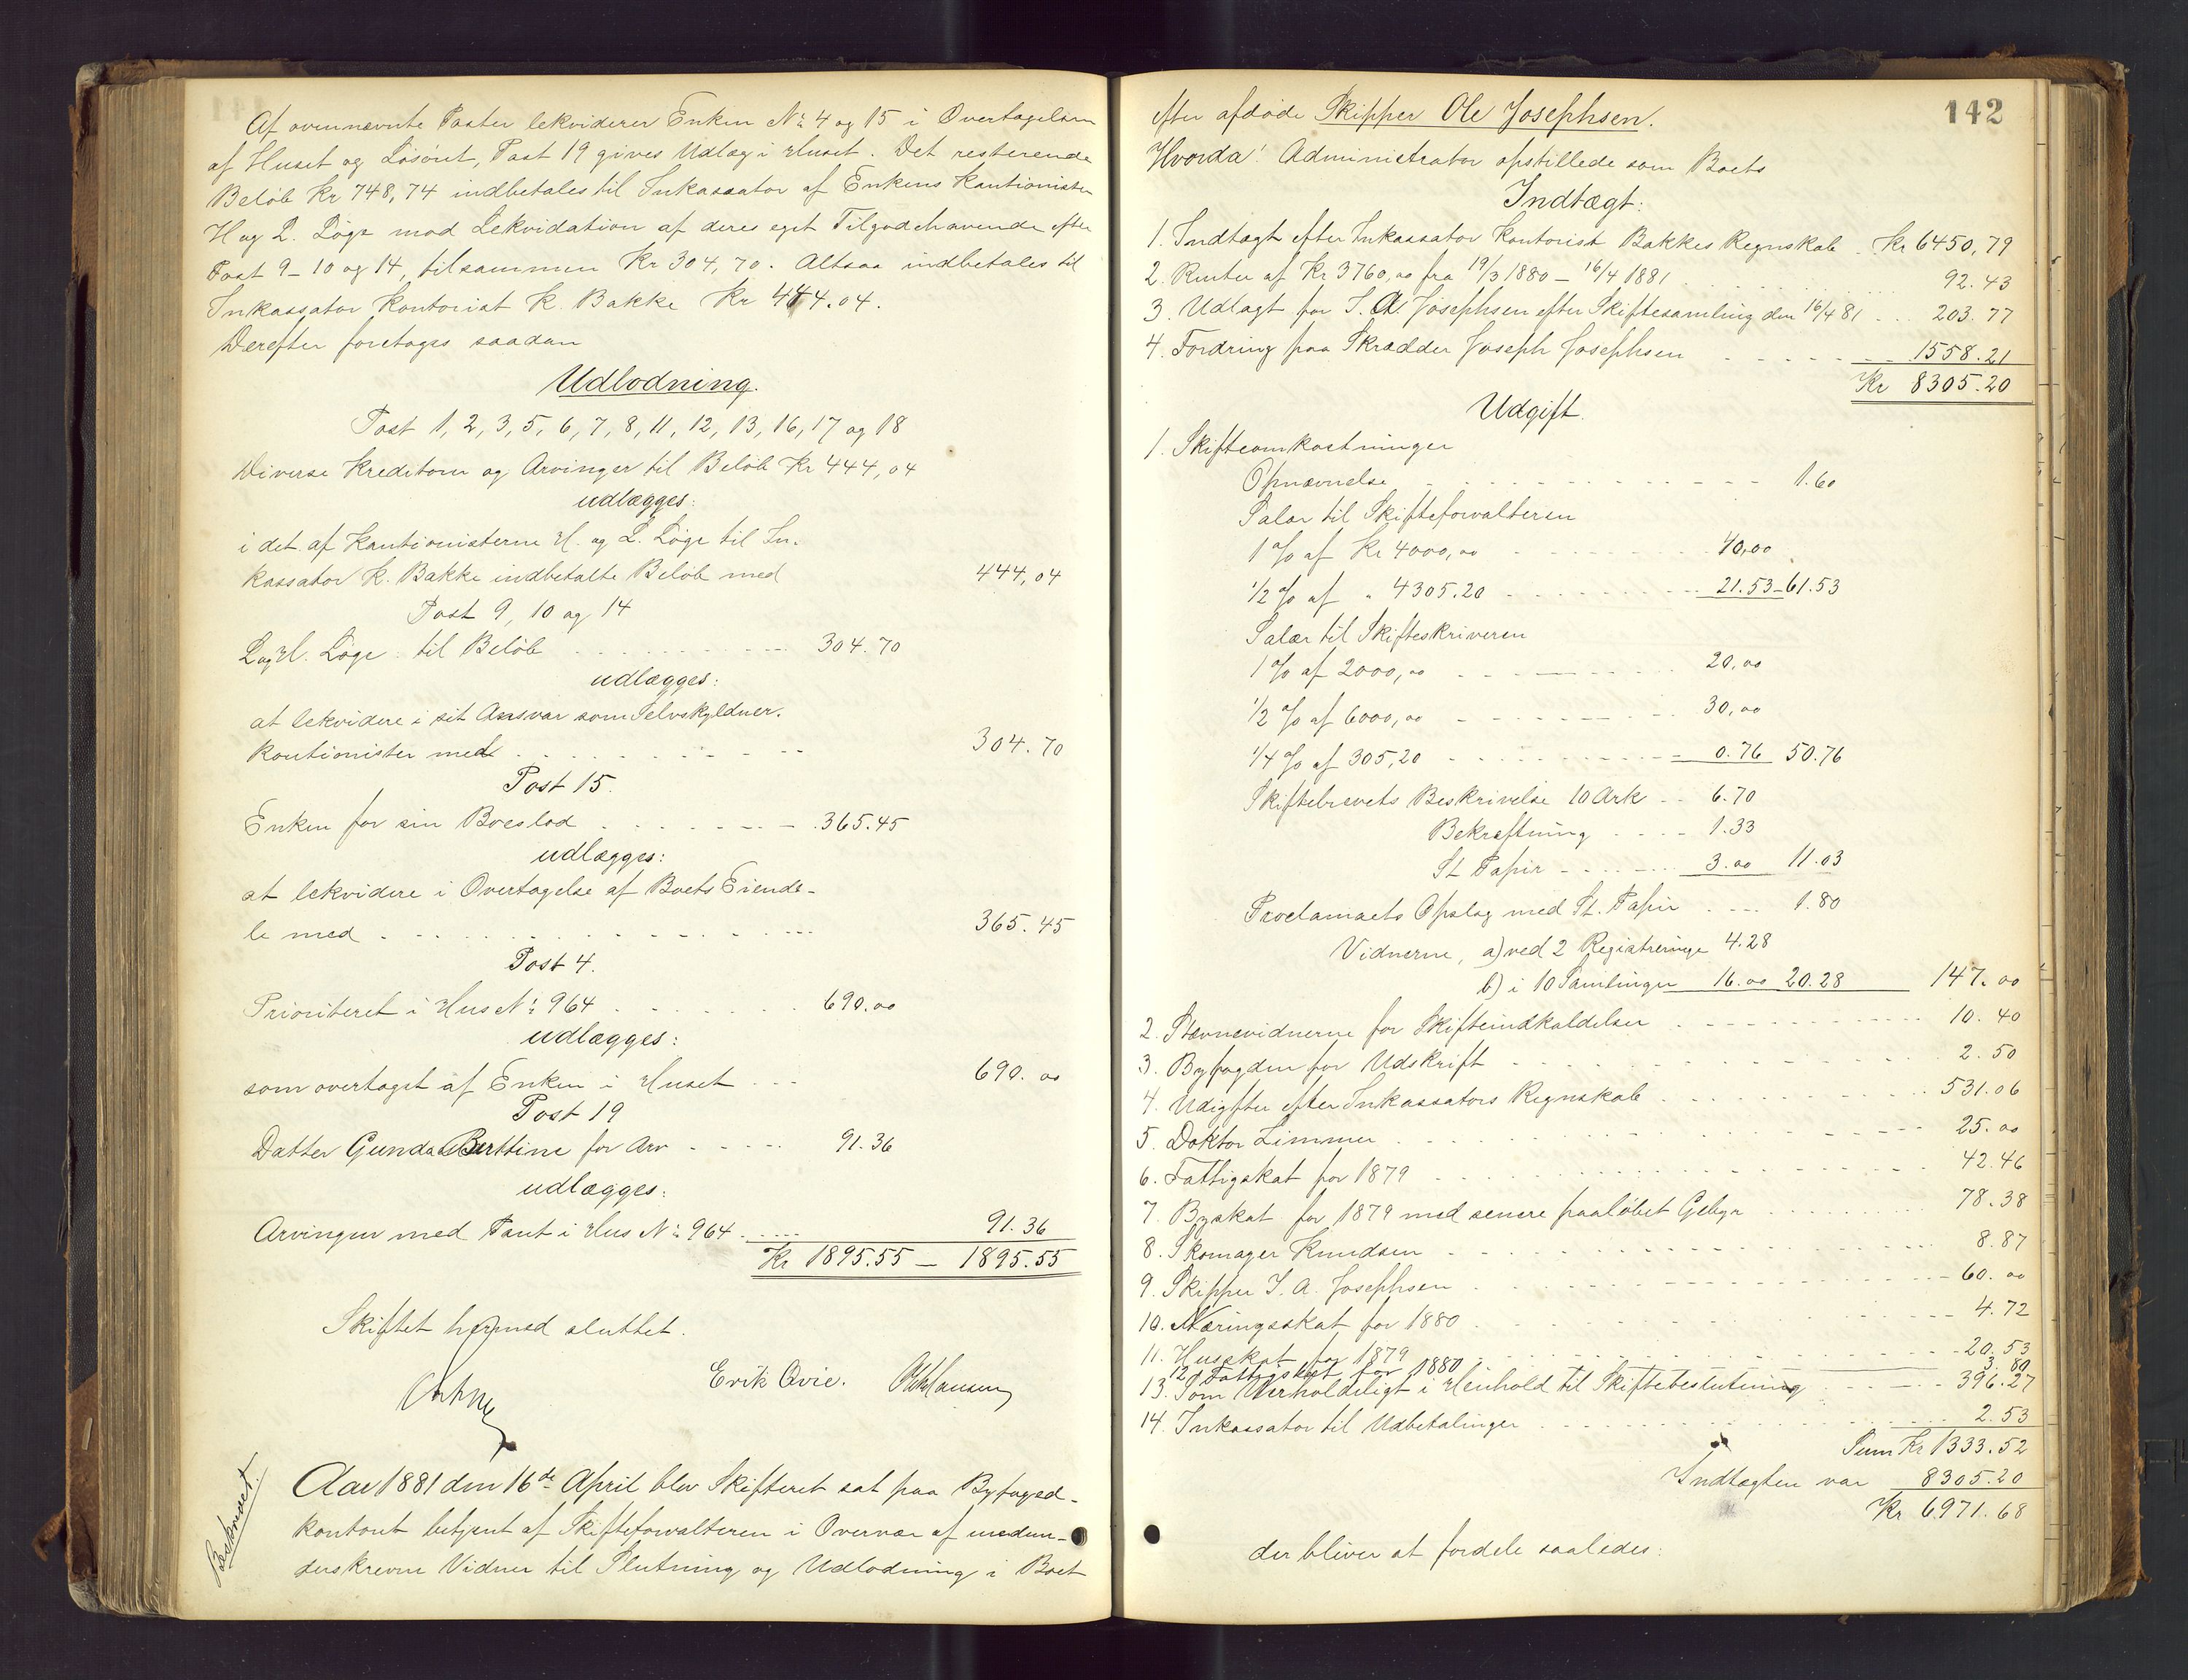 Af ovennævnte Poster lekviderer Enken No 4 og 15 i Overtagelsen
af Huset og Løsøret, Post 19 gives Udlæg i Huset. Det resterende
Beløb Kr 748,74 indbetales til Inkassator af Enkens Kautionister
H og L. Løge mod Lekvidation af deres eget Tilgodehavende efter
Post 9-10 og 14, tilsammen Kr 304,70. Altsaa indbetales til
Inkassator Kontorist K. Bakke Kr 444.04.
Derefter foretoges saadan
Udlodning.
Post 1, 2, 3, 5, 6, 7, 8, 11, 12, 13, 16, 17 og 18
Diverse Kreditorer og Arvinger til Beløb Kr 444,04
udlægges:
i det af Kautionisterne H. og L. Løge til In-
kassator K. Bakke indbetalte Beløb med 444,04
Post 9, 10 og 14
L og H. Løge til Beløb 304.70
udlægges:
at lekvidere i sit Ansvar som Selvskyldner-
kautionister med 304.70
Post 15.
Enken for sin Boeslod 365.45
udlægges:
at lekvidere i Overtagelse af Boets Eiende-
le med 365.45
Post 4.
Prioriteret i Hus No 964 690.00
udlægges:
som overtaget af Enken i Huset 690.00
Post 19
Datter Gunda Berttine for Arv 91.36
udlægges:
Arvingen med Pant i Hus No 964 91.36
Kr 1895.55 – 1895.55
Skiftet hermed sluttet.
Erik Qvie.
Beskrevet.
Aar 1881 den 16de April blev Skifteret sat paa Byfoged-
kontoret betjent af Skifteforvalteren i Overvær af medun-
derskrevne Vidner til Slutning og Udlodning i Boet
142
efter afdøde Skipper Ole Josephsen.
Hvorda! Administrator opstillede som Boets
Indtægt:
1. Indtægt efter Inkassator Kontorist Bakkes Regnskab Kr 6450,79
2. Renter af Kr 3760,00 fra 19/3 1880 – 16/4 1881 92.43
3. Udlagt for J. A. Josephsen efter Skiftesamling den 16/4 81 203.77
4. Fordring paa Skrædder Joseph Josephsen 1558.21
Kr 8305.20
Udgift.
1. Skifteomkostninger
Opnævnelse 1.60
Salær til Skifteforvalteren
1 % af Kr 4000,00 40,00
1/2 % af " 4305.20 21.53 – 61.53
Salær til Skifteskriveren
1 % af 2000,00 20,00
1/2 % af 6000,00 30,00
1/4 % af 305,20 0.76 50.76
Skiftebrevets Beskrivelse 10 Ark 6.70
Bekræftning 1.33
St Papir 3.00 11.03
Proclamaets Opslag med St. Papir 1.80
Vidnerne, a) ved 2 Registreringer 4.28
b) i 10 Samlinger 16.00 20.28 147.00
2. Stævnevidnerne for Skifteindkaldelser 10.40
3. Byfogden for Udskrift 2.50
4. Udigfter efter Inkassators Regnskab 531.06
5. Doktor Limmer 25.00
6. Fattigskat for 1879 42.46
7. Byskat for 1879 med senere paaløbet Gebyr 78.38
8. Skomager Knudsen 8.87
9. Skipper J. A. Josephsen 60.00
10. Næringsskat for 1880 4.72
11. Husskat for 1879 20.53
12. Fattigskat for 1880 3.80
13. Som Uerholdeligt i Henhold til Skiftebeslutning 396.27
14. Inkassator til Udbetalinger 2.53
Sum Kr 1333.52
Indtægten var 8305.20
Kr 6971.68
der bliver at fordele saaledes: